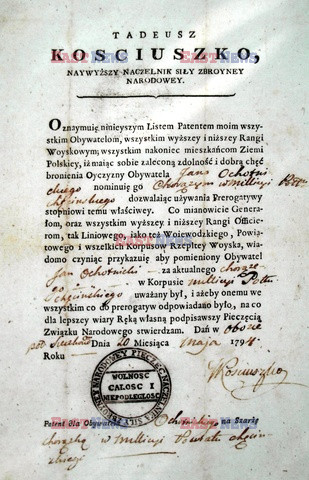 TADEUSZ
KOSCIUSZKO,
NAYWYŻSZY NACZELNIK SIŁY ZBROYNEY
NARODOWEY.
Oznaymuię ninieyszym Listem Patentem moim wszy-
stkim Obywatelom, wszystkim wyższey i niższey Rangi
Woyskowym; wszystkim nakoniec mieszkańcom Ziemi
Polskiey, iż maiąc sobie zaleconą zdolność i dobrą chęć
bronienia Oyczyzny Obywatela Jana Ochotni-
ckiego nominuię go Chorążym w Milicyi
dozwalaiąc używania Prerogatyw
stopniowi temu właściwey. Co mianowicie Genera-
łom, oraz wszystkim wyższey i niższey Rangi Officie-
rom, tak Liniowego, iako też Woiewodzkiego, Powia-
towego i wszelkich Korpusów Rzeplłtey Woyska, wia-
domo czyniąc przykazuię aby pomieniony Obywatel
Jan Ochotnicki za aktualnego chorąże-
go w Korpusie milicyi
uważany był, i ażeby onemu we
wszystkim co do prerogatyw odpowiadano było, na co
dla lepszey wiary Ręką własną podpisawszy Pieczęcią
Związku Narodowego stwierdzam. Dań w obozie
pod Dnia 20 Miesiąca maja 1794.
Roku
TKosciuszko
PIECZĘC NACZELNIKA SIŁY ZBROYNEY NARODOWEY
WOLNOŚĆ
CAŁOŚĆ I
NIEPODLEGŁOŚĆ
Patent dla Obywatela Ochotnickiego na Szarżę
chorążego w Milicyi Powiatu chęciń-
skiego
EAST NEWS
EAST NEWS
EAST NEWS
EAST NEWS
EAST NEWS
EAST NEWS